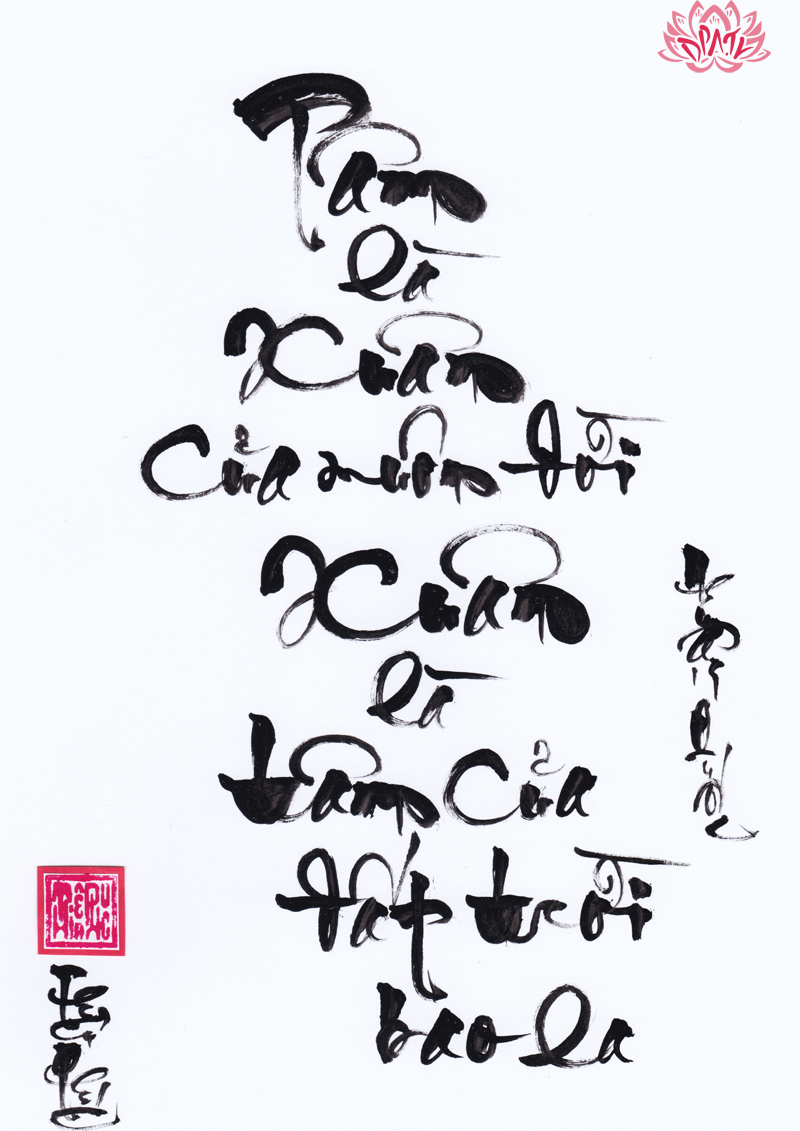 DPATV
Tâm
là
Xuân
Của muôn đời
Xuân
là
tâm của
đất trời
bao la